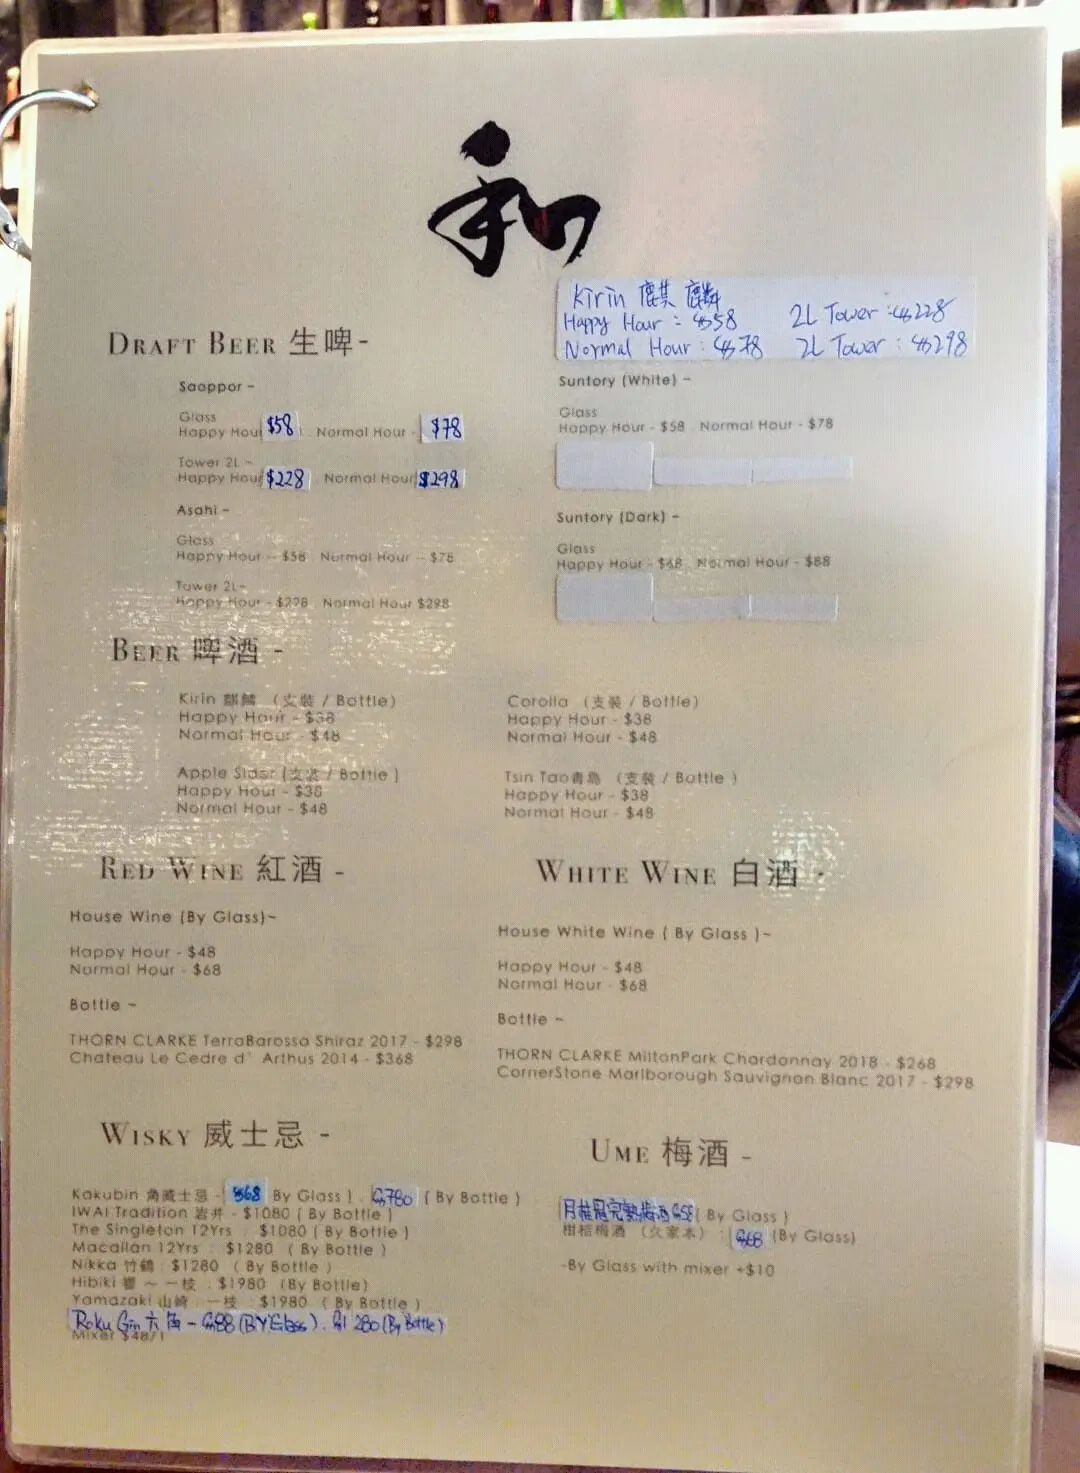 和
Kirin 麒麟
Happy Hour : $58 2L Tower : $228
Normal Hour : $78 2L Tower : $298
DRAFT BEER 生啤-
Saoppor ~
Glass
Happy Hou $58 . Normal Hour - $78
Tower 2L ~
Happy Hour $228 Normal Hour $298
Asahi ~
Glass
Happy Hour - $58 . Normal Hour - $78
Tower 2L~
Happy Hour - $228 . Normal Hour $298
Suntory (White) ~
Glass
Happy Hour - $58 . Normal Hour - $78
Suntory (Dark) ~
Glass
Happy Hour - $68 . Normal Hour - $88
BEER 啤酒 -
Kirin 麒麟 （支裝 / Bottle)
Happy Hour - $38
Normal Hour - $48
Corolla （支裝 / Bottle)
Happy Hour - $38
Normal Hour - $48
Apple Sider (支裝 / Bottle )
Happy Hour - $38
Normal Hour - $48
Tsin Tao青島 （支裝 / Bottle )
Happy Hour - $38
Normal Hour - $48
RED WINE 紅酒 -
House Wine (By Glass)~
Happy Hour - $48
Normal Hour - $68
Bottle ~
THORN CLARKE TerraBarossa Shiraz 2017 - $298
Chateau Le Cedre d' Arthus 2014 - $368
WHITE WINE 白酒 -
House White Wine ( By Glass )~
Happy Hour - $48
Normal Hour - $68
Bottle ~
THORN CLARKE MiltonPark Chardonnay 2018 - $268
CornerStone Marlborough Sauvignon Blanc 2017 - $298
WISKY 威士忌 -
Kakubin 角威士忌 - $68 By Glass ) . $780 ( By Bottle )
IWAI Tradition 岩井 - $1080 ( By Bottle )
The Singleton 12Yrs : $1080 ( By Bottle )
Macallan 12Yrs : $1280 ( By Bottle )
Nikka 竹鶴 : $1280 ( By Bottle )
Hibiki 響 ~ 一枝 : $1980 (By Bottle)
Yamazaki 山崎 : 一枝 : $1980 ( By Bottle )
Roku Gin 六 - $88 (BY Glass) . $1280 (By Bottle)
Mixer $48/1
UME 梅酒 -
月桂冠完熟梅酒 $58 ( By Glass )
柑桔梅酒 : $68 (By Glass)
-By Glass with mixer +$10